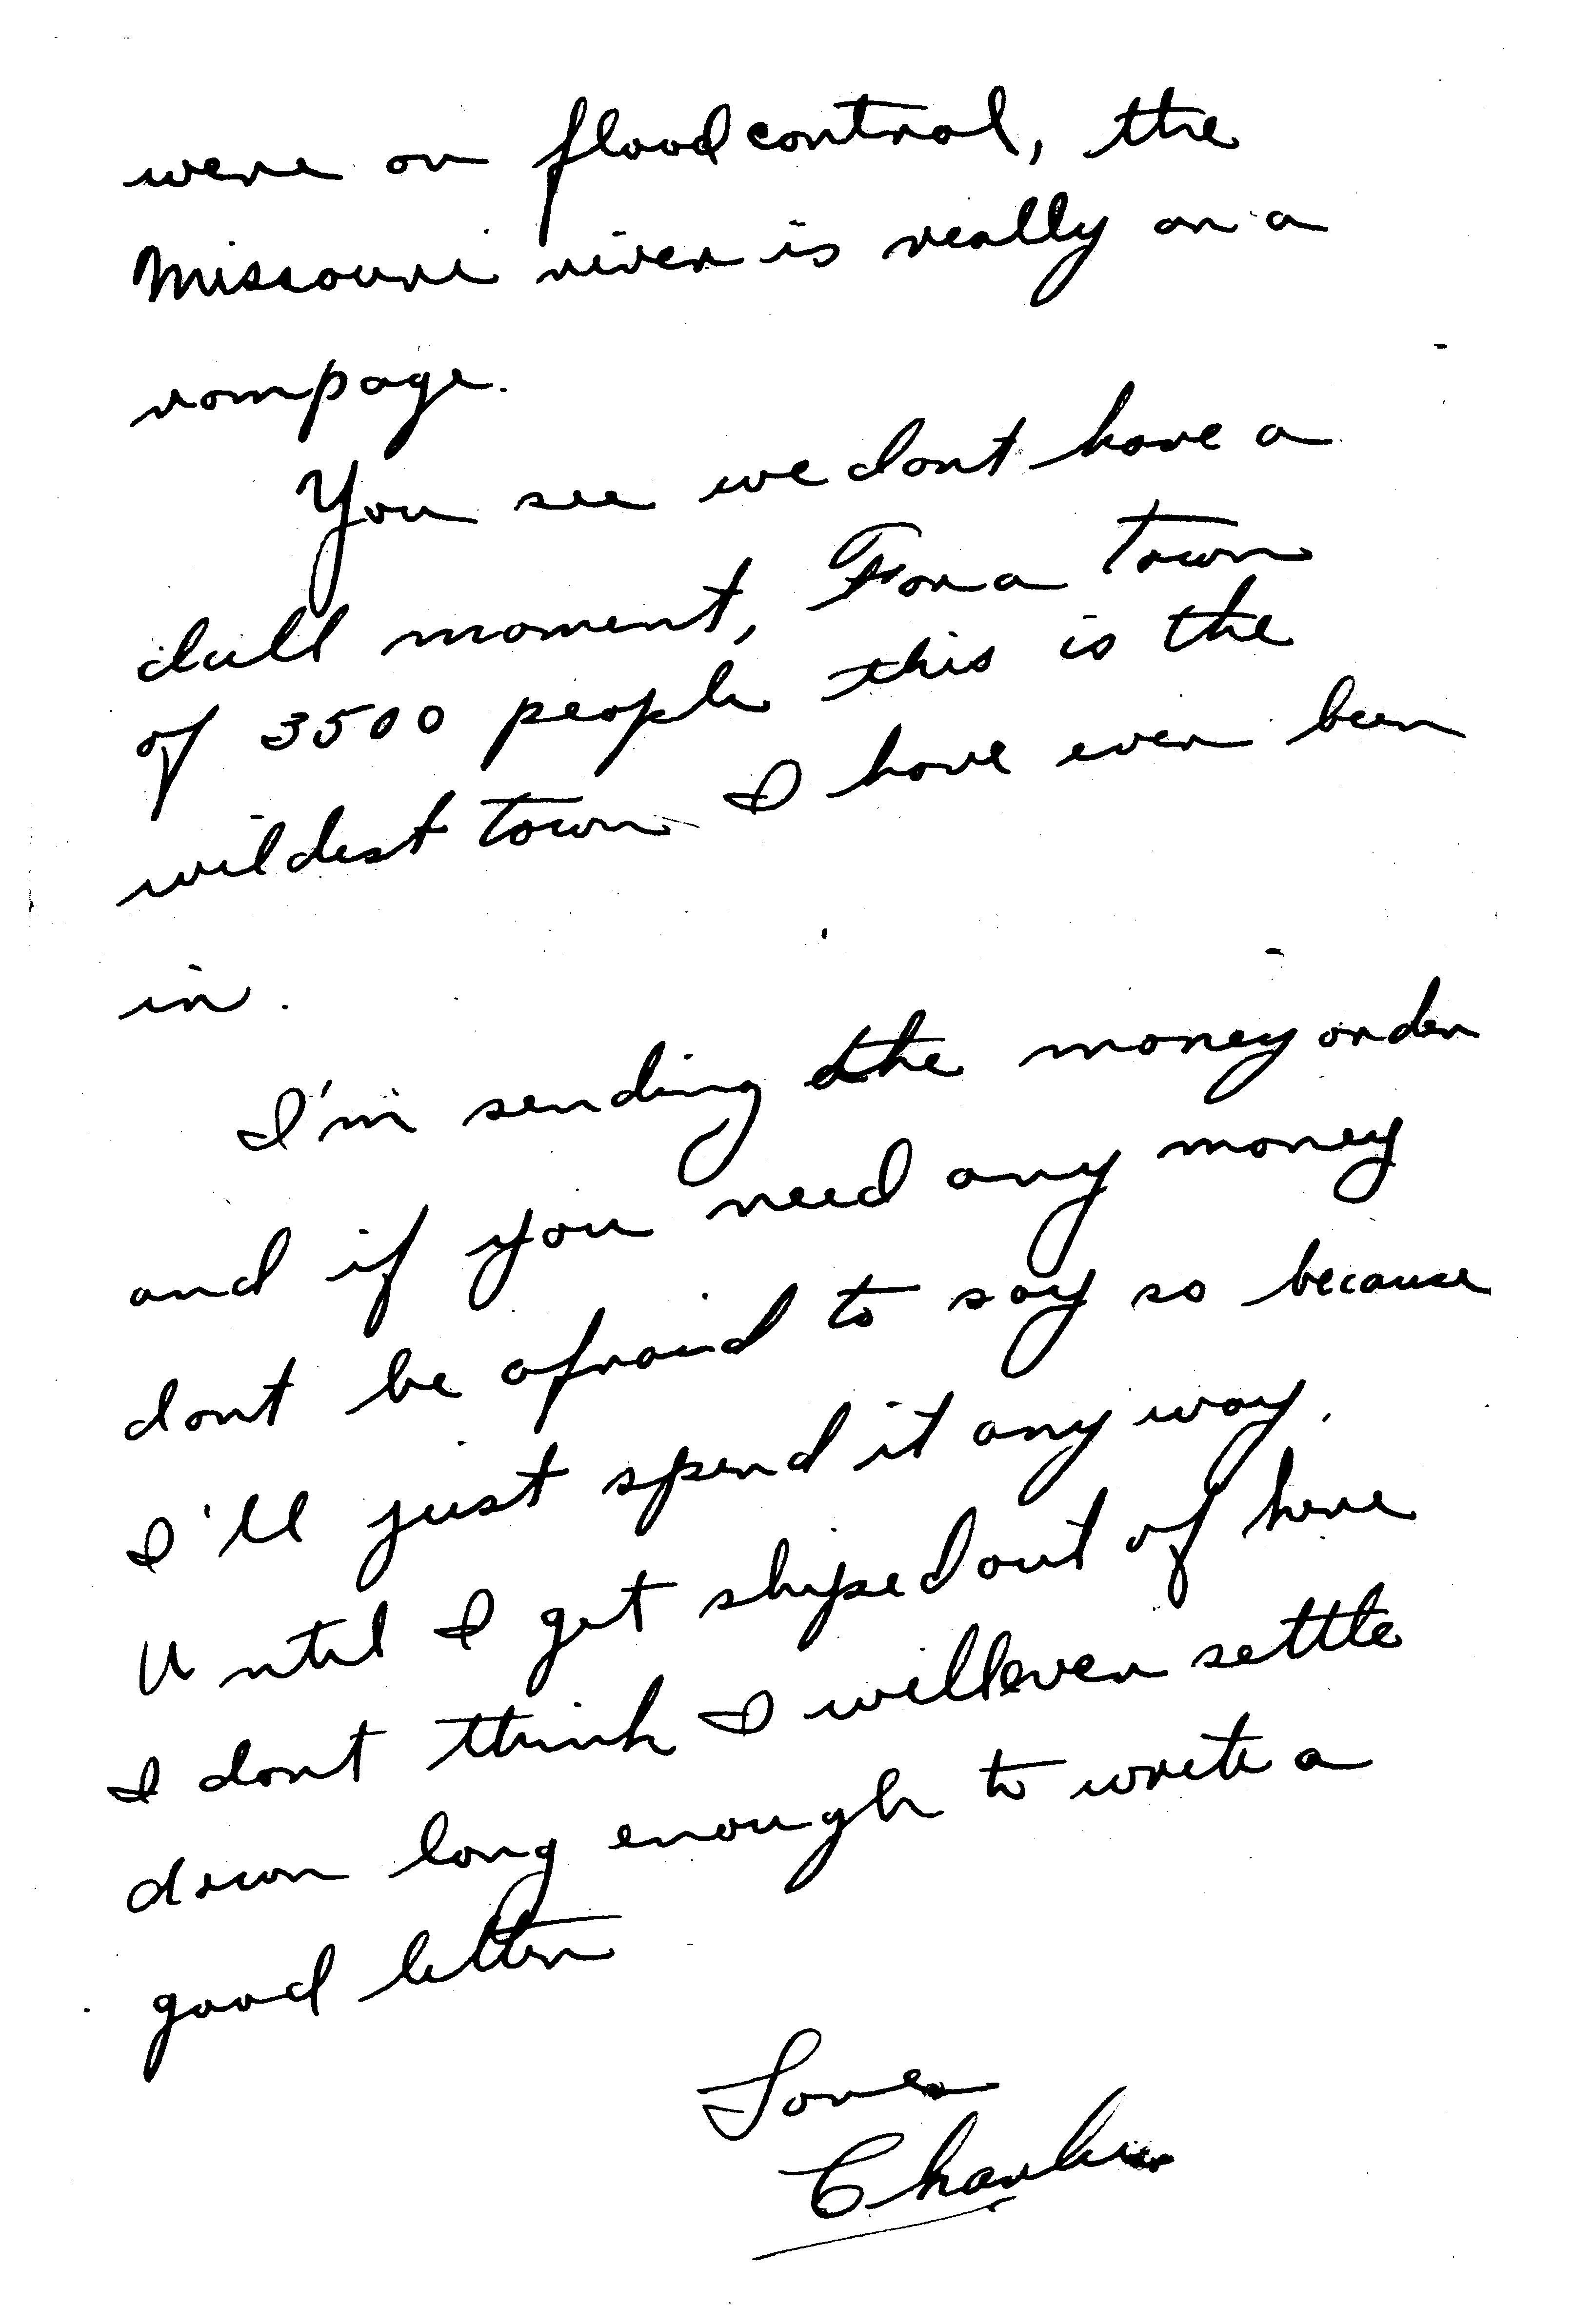 were on flood control, the
Missouri river is really on a
rampage.
You see we dont have a
dull moment, For a town
of 3500 people this is the
wildest town I have ever been
in.
I'm sending the money order
and if you need any money
dont be afraid to say so because
I'll just spend it any way.
Until I get shiped out of here
I dont think I will ever settle
down long enough to write a
good letter
Love
Charlie